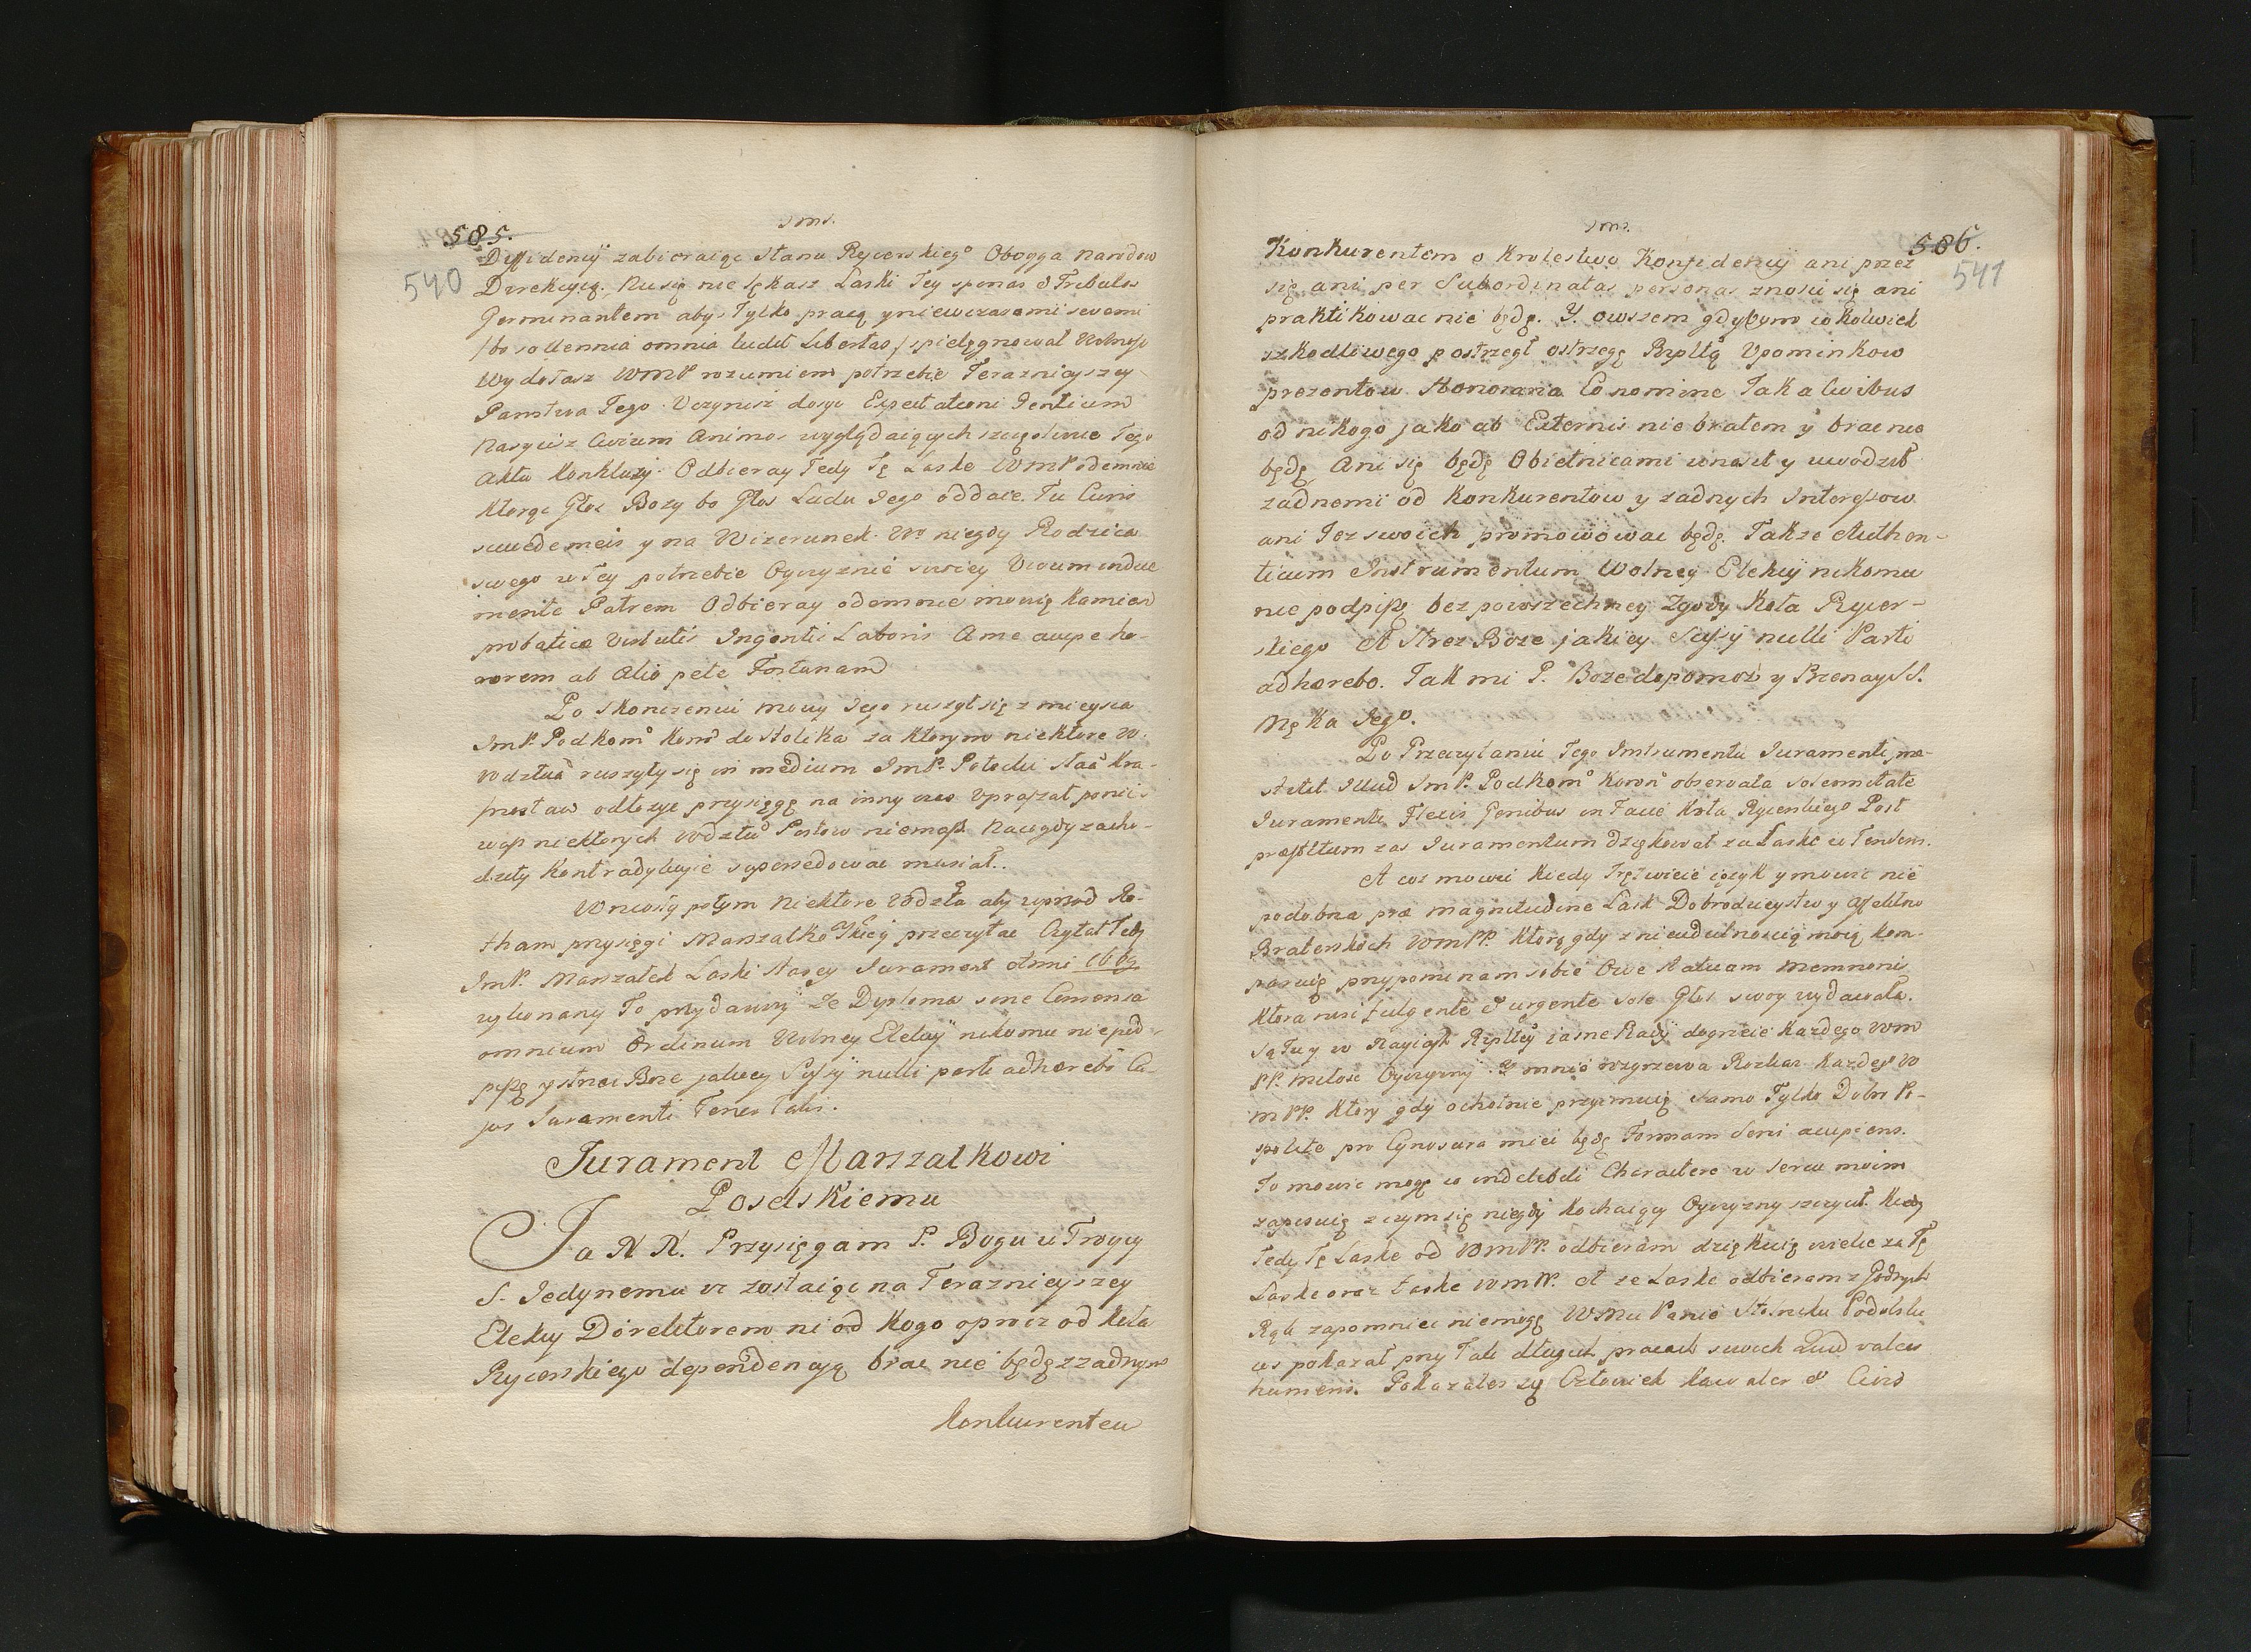 585.
540
Diffidencij zabieraiąc Stanu Rycerskiego Oboyga narodow
Direkcyią. Nusię nie lękasz Laski Tey spinas & Tribulos
Germinantem abys Tylko pracą y niewczasami swemi
/bo sollennia omnia ludit Libertas/ spielęgnował Wolnosc
Wydołasz WMP rozumiem potrzebie Teraznieyszey
Panstwa Tego. Uczynisz dosyc Expectationi Gentium
Nasycisz Civium Animos wyglądaiących szczęsliwie Tego
Aktu Konkluzij. Odbieray Tedy Tę Laskę WMP odemnie
Ktorąc Głos Bozy bo Głos Ludu Jego oddaie. Tu Civis
y na Wizerunek W. niegdy Rodzica
swego w Tey potrzebie Oyczyznie swoiey Virum indue
mente Patrem Odbieray odemnie mowię Kamien
probatica Virtutis Ingentis Laboris A me accipe ho-
norem ab Alio pete Fortunam
Po Skonczeniu mowy Jego ruszył się z mieysca
ImP. Podkom. Koro do Stolika za Ktorym niektore W.
wodztwa ruszyły się in medium ImP. Potocki Staa Kra-
snostaw odłozyc przysięgę na inny czas Upraszał poniewaz
niektorych Wdztw Posłow niemasz Na co gdy zacho-
dziły Kontradykcyie supersedowac musiał.
Wniosły potym Niektore Wdztwa aby wprzod Ro-
tham przysięgi Marszałkowskiey przeczytac Czytał Tedy
ImP. Marszałek Laski Starey Jurament Anni 1669
wykonany To przydawszy Ze Dyploma sine Consensu
omnium Ordinum Wolney Elekcyi nikomu niepod-
piszę ystrzez Boze jakiey Scissij nulli parti adhaerebo Cu-
jus Juramenti Tenor Talis.
Jurament Marszałkowi
Poselskiemu
Ja N N. Przysięgam P. Bogu w Troycy
S. Jedynemu iz zostaiąc na Teraznieyszey
Elekcy Direktorem ni od Kogo oprocz od Koła
Rycerskiego dependencyą brac nie będę z zadnym
Konkurentem
586.
541
Konkurentem o Krolestwo Konfidencij ani przez
się ani per Subordinatas personas znosic się ani
praktikowac nie będę. Y. owszem gdybym cokolwiek
szkodliwego postrzegł ostrzegę Rzplltą Upominkow
prezentow Honoraria Eo nomine Tak a Civibus
od nikogo jako ab Externis nie brałem y brac nie
będę Ani się będę Obietnicami unosił y uwodził
zadnemi od Konkurentow y zadnych Interessow
ani Tez swoich promowowac będę. Takze Authen-
ticum Instrumentum Wolney Elekcij nikomu
nie podpiszę bez powszechney Zgody Koła Rycer-
skiego A Strzez Boze jakiey Scissij nulli Parti
adhaerebo. Tak mi P. Boze dopomoz y Przenays.
Męka Jego.
Po Przeczytaniu Tego Instrumentu Juramenti prae-
stitit Illud ImP. Podkom. Koron observata solemnitate
Juramenti Flexis Genibus in Facie Koła Rycerskiego Post
praestitum zas Juramentum dziękował za Laskę in Tenorem.
A coz mowic Kiedy Trętwieie ięzyk y mowic nie
podobna prae magnitudine Łask Dobrodzieystw y affektow
Braterskich WMPP. Ktorą gdy z nieudolnoscią moią kom-
paruię przypominam sobie Owe Statuam Memnonis
Ktora nisi fulgente & urgente sole Głos swoy wydawała.
Są Tuy w Rzplltey iasne dogrzeie Kazdego WM
PP. Miłosc Oyczyzny. Y mnie wzgrzewa Rozkaz Kazdego W
MPP. Ktory gdy ochotnie przyimuię samo Tylko Dobro Po-
spolite pro Cynosura miec będę Formam Seni accipiens.
To mowic mogę co indelebili Charactere w sercu moim
zapisuię z czym się niegdy Kochaiący Oyczyzny szczycił. Kiedy
Tedy Tę Laskę od WMPP. odbieram dziękuię wielce za Tę
Laskę oraz Łaskę WMPP. A ze Laskę odbieram z Godnych
Rąk zapomniec niemogę WMci Panie Stolniku Podolski
cos pokazał przy Tak długich pracach swoich Quid valeas
humeris. Pokazales zes Człowiek Kawaler & Civis